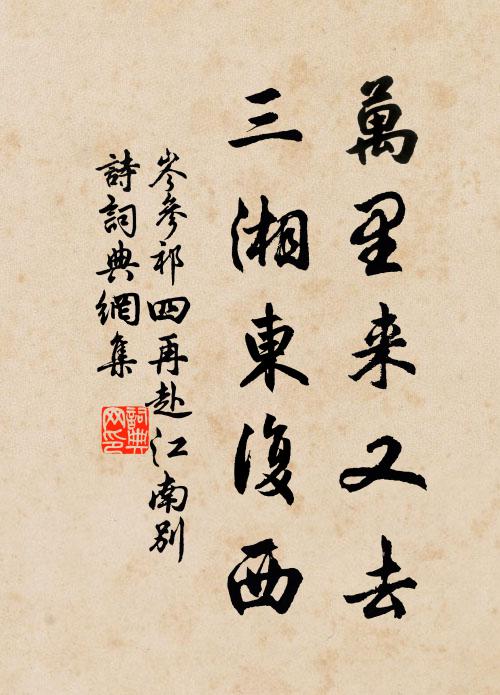 萬里来又去
三湘東復西
岑參祁四再赴江南別
詩詞典網集
詞典网印